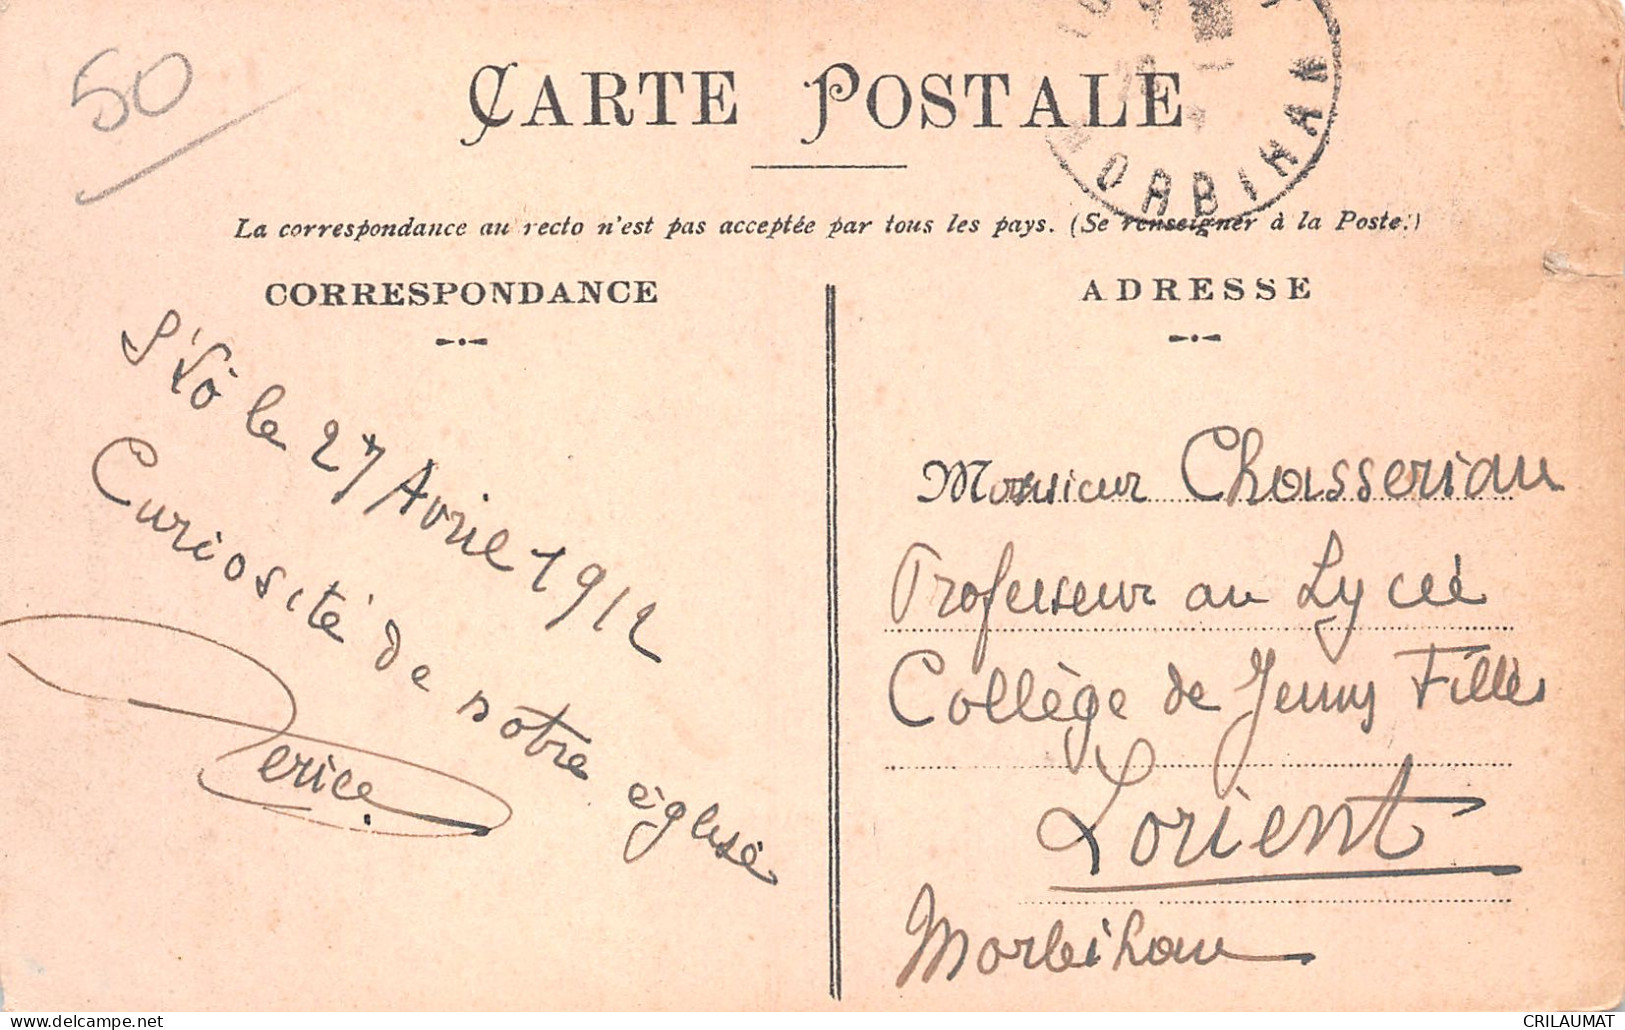 50
CARTE POSTALE
MORBIHAN
La correspondance au recto n'est pas acceptée par tous les pays. (Se renseigner à la Poste.)
CORRESPONDANCE
St Lô le 27 Avril 1912
Curiosité de notre église
ADRESSE
Monsieur Chasseriau
Professeur au Lycée
Collège de Jeunes Filles
Lorient
Morbihan
delcampe.net
CRILAUMAT